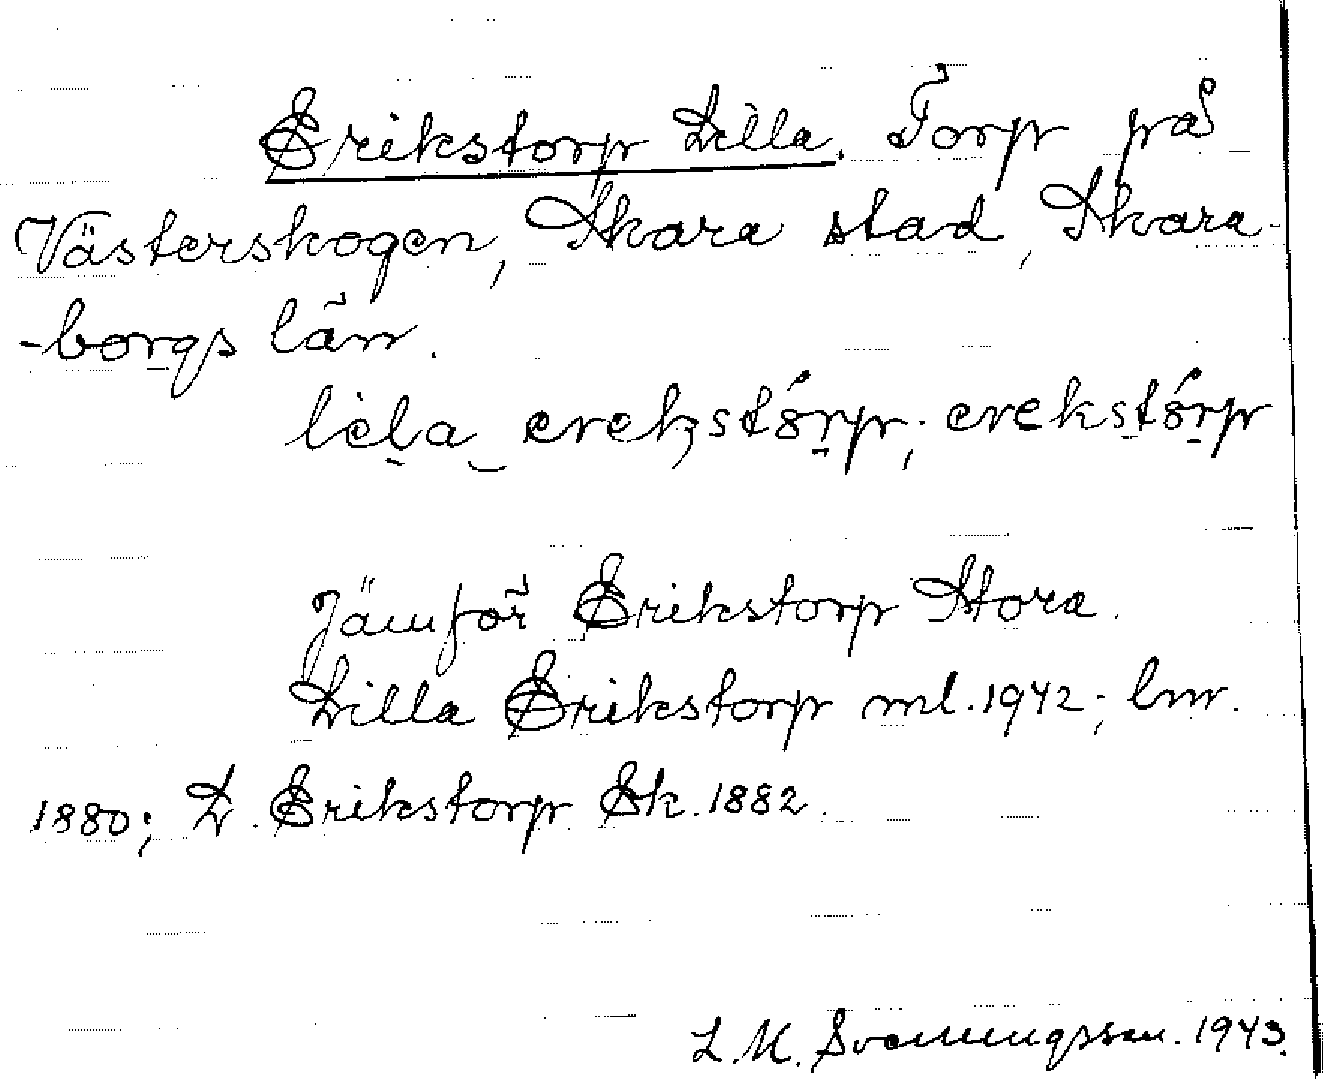 Erikstorp Lilla. Torp på
Västerskogen, Skara stad, Skara-
-borgs län.
lèla erekstórp; erekstórp
Jämför Erikstorp Stora.
Lilla Erikstorp ml. 1942; lm.
1880; L. Erikstorp Ek. 1882.
L. M. Svenningsson. 1943.